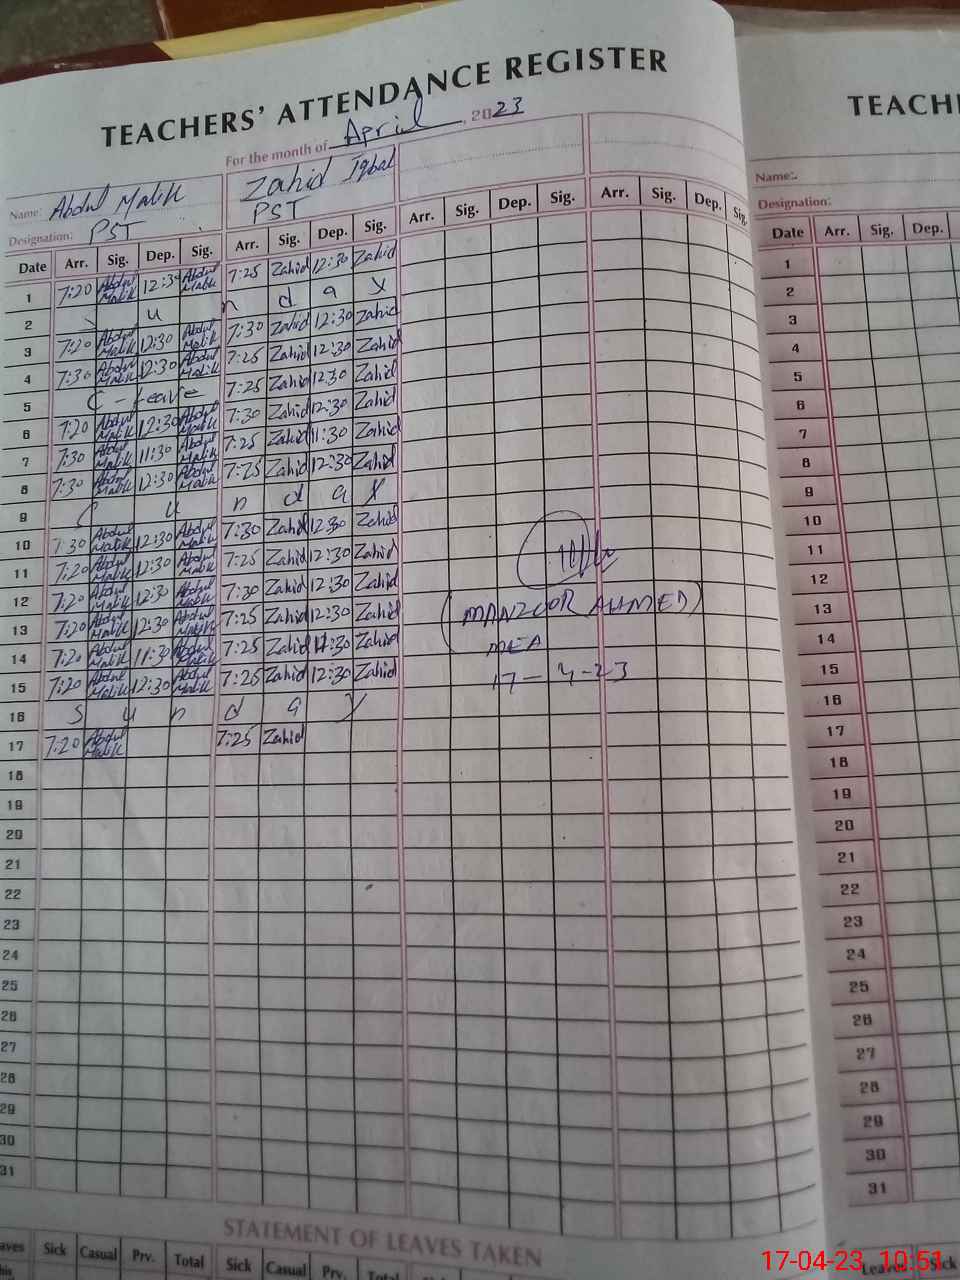 TEACHERS' ATTENDANCE REGISTER
For the month of April, 2023
Name: Abdul Malik Zahid Iqbal
Designation: PST PST
Date Arr. Sig. Dep. Sig. Arr. Sig. Dep. Sig. Arr. Sig. Dep. Sig. Arr. Sig. Dep. Sig.
1 7:20 Abdul Malik 12:30 Abdul Malik 7:25 Zahid 12:30 Zahid
2 S u n d a y
3 7:20 Abdul Malik 12:30 Abdul Malik 7:30 Zahid 12:30 Zahid
4 7:30 Abdul Malik 12:30 Abdul Malik 7:25 Zahid 12:30 Zahid
5 C - Leave 7:25 Zahid 12:30 Zahid
6 7:20 Abdul Malik 12:30 Abdul Malik 7:30 Zahid 12:30 Zahid
7 7:30 Abdul Malik 11:30 Abdul Malik 7:25 Zahid 11:30 Zahid
8 7:30 Abdul Malik 12:30 Abdul Malik 7:25 Zahid 12:30 Zahid
9 S u n d a y
10 7:30 Abdul Malik 12:30 Abdul Malik 7:30 Zahid 12:30 Zahid
11 7:20 Abdul Malik 12:30 Abdul Malik 7:25 Zahid 12:30 Zahid
12 7:20 Abdul Malik 12:30 Abdul Malik 7:30 Zahid 12:30 Zahid
13 7:20 Abdul Malik 12:30 Abdul Malik 7:25 Zahid 12:30 Zahid
14 7:20 Abdul Malik 11:30 Abdul Malik 7:25 Zahid 11:30 Zahid
15 7:20 Abdul Malik 12:30 Abdul Malik 7:25 Zahid 12:30 Zahid
16 S u n d a y
17 7:20 Abdul Malik 7:25 Zahid
18
19
20
21
22
23
24
25
26
27
28
29
30
31
(MANZOOR AHMED)
MEA
17-4-23
STATEMENT OF LEAVES TAKEN
Sick Casual Prv. Total Sick Casual Prv. Total
TEACH
Name:
Designation:
Date Arr. Sig. Dep.
1
2
3
4
5
6
7
8
9
10
11
12
13
14
15
16
17
18
19
20
21
22
23
24
25
26
27
28
29
30
31
Leaves Sick
17-04-23 10:51